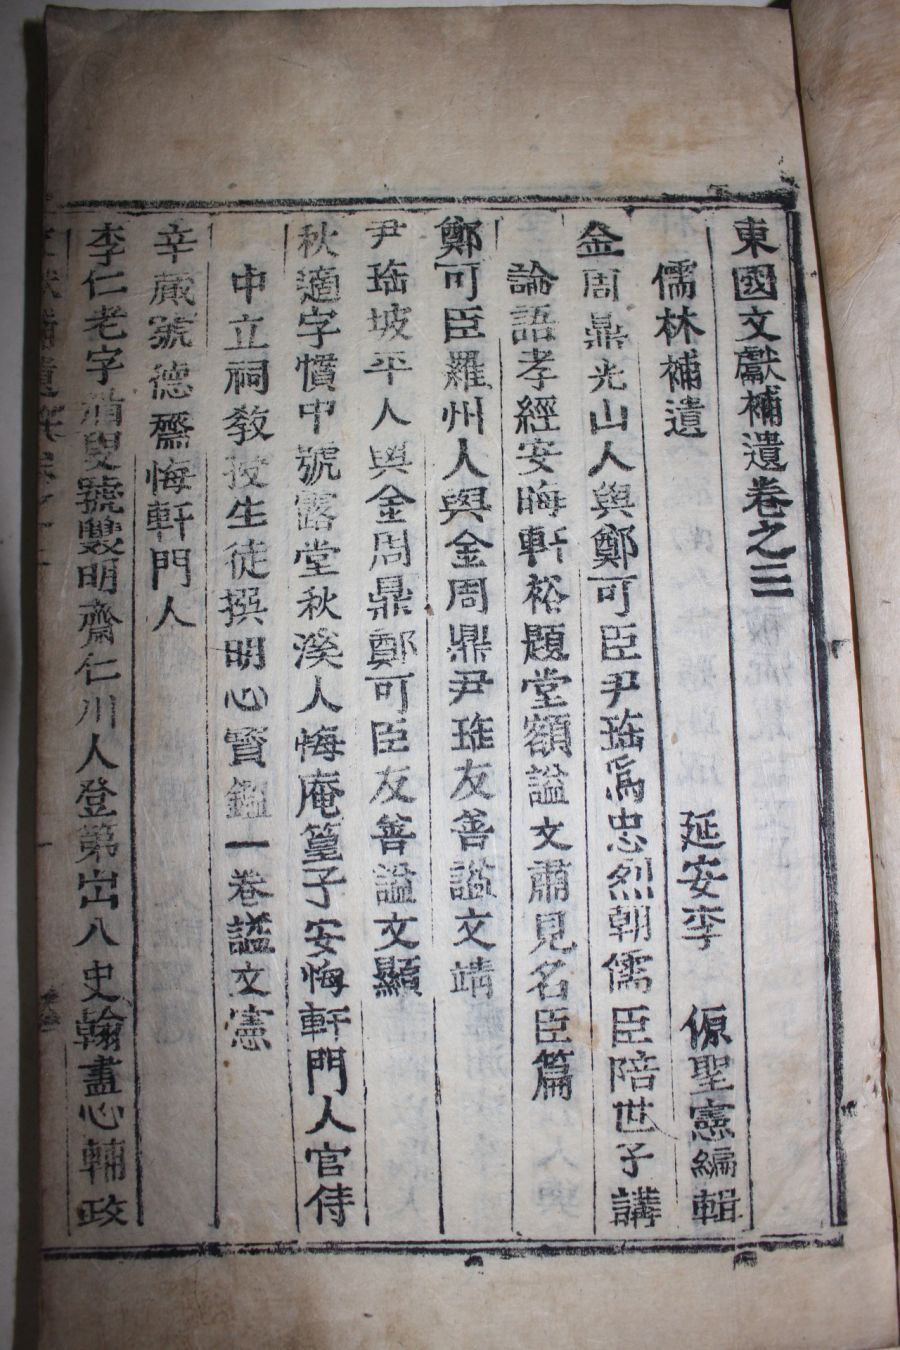 東國文獻補遺卷之三
儒林補遺
延安李 㥳聖憲編輯
金周鼎光山人與鄭可臣尹珤爲忠烈朝儒臣陪世子講
論語孝經安晦軒裕題堂額謚文肅見名臣篇
鄭可臣羅州人與金周鼎尹珤友善謚文靖
尹珤坡平人與金周鼎鄭可臣友善謚文顯
秋適字慣中號露堂秋溪人悔庵篁子安悔軒門人官侍
中立祠教授生徒撰明心賢鑑一卷謚文憲
辛蕆號德齋悔軒門人
李仁老字眉叟號雙明齋仁川人登第出入史翰盡心輔政